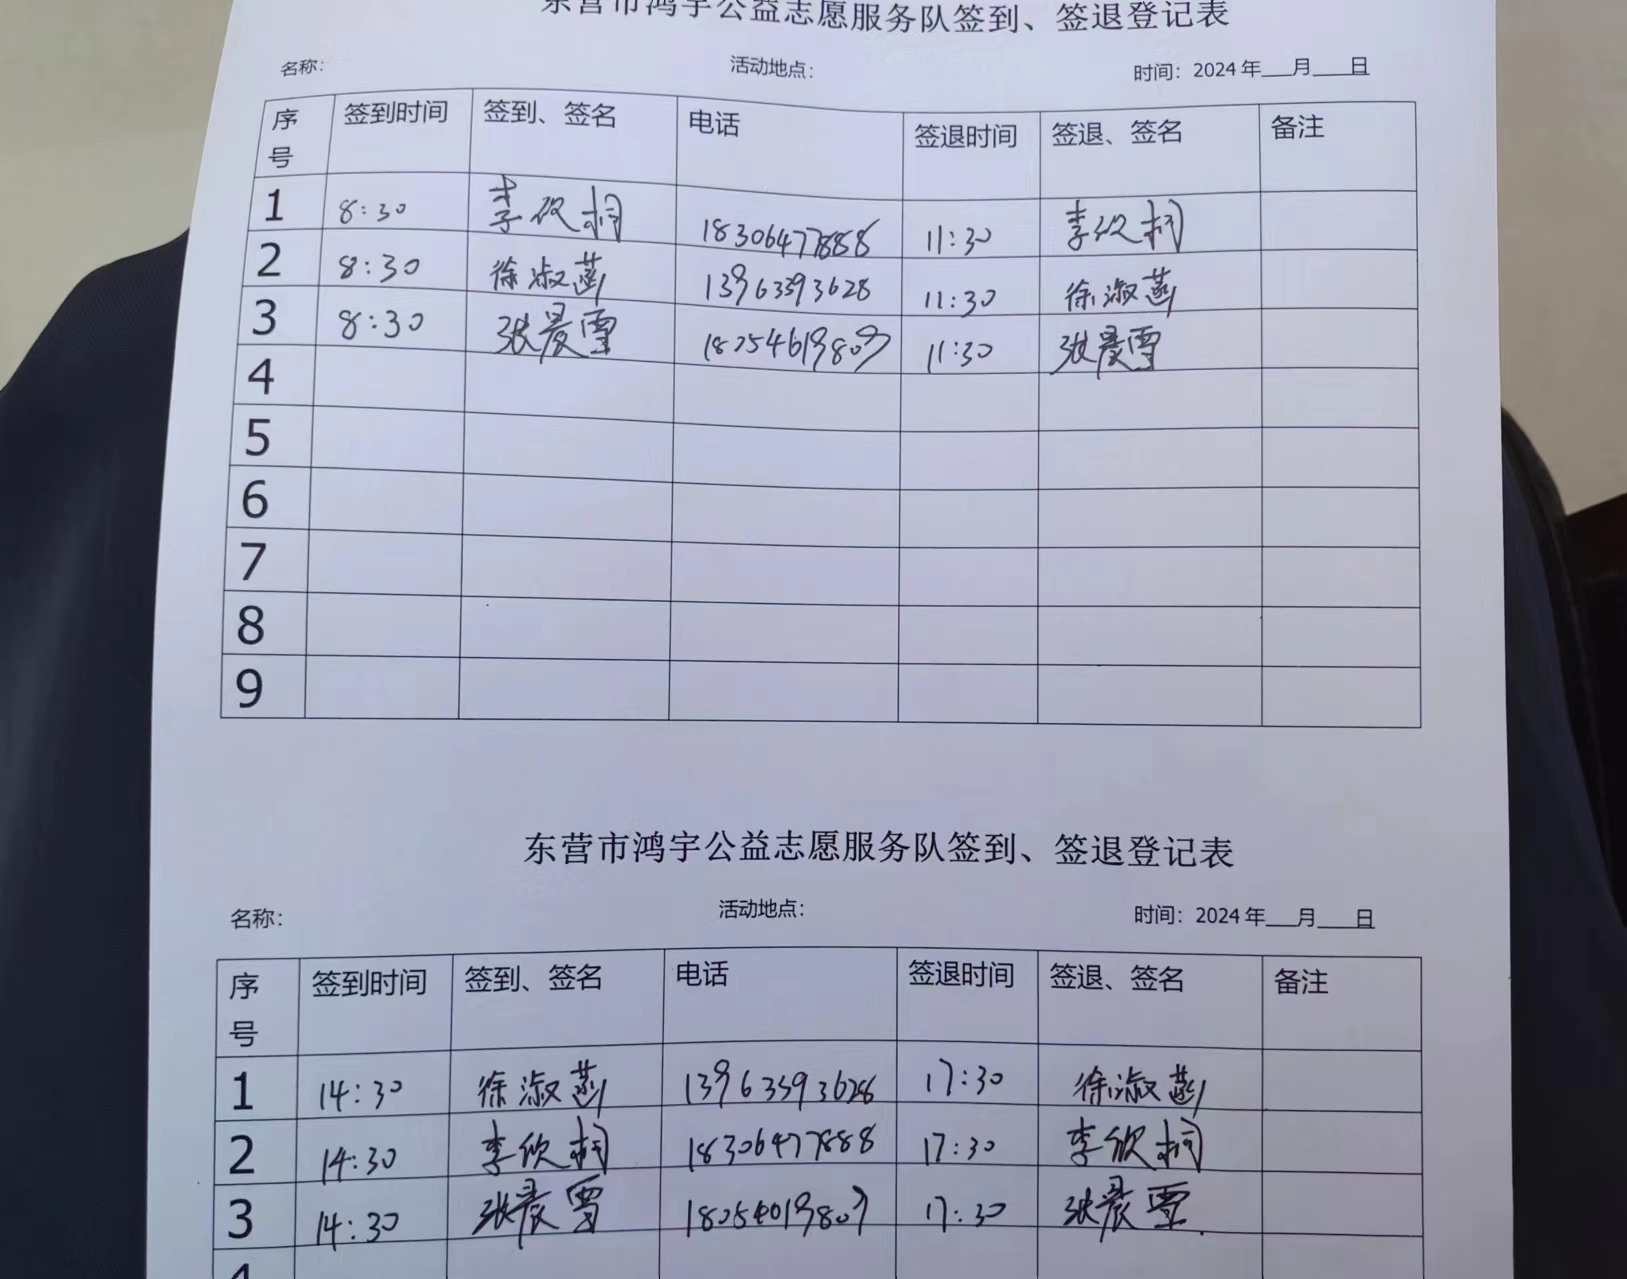 东营市鸿宇公益志愿服务队签到、签退登记表
名称： 活动地点： 时间：2024年___月___日
序号 签到时间 签到、签名 电话 签退时间 签退、签名 备注
1 8:30 李欣桐 18306477888 11:30 李欣桐
2 8:30 徐淑菡 13963393628 11:30 徐淑菡
3 8:30 张晨雪 18254619809 11:30 张晨雪
4
5
6
7
8
9
东营市鸿宇公益志愿服务队签到、签退登记表
名称： 活动地点： 时间：2024年___月___日
序号 签到时间 签到、签名 电话 签退时间 签退、签名 备注
1 14:30 徐淑菡 13963393628 17:30 徐淑菡
2 14:30 李欣桐 18306477888 17:30 李欣桐
3 14:30 张晨雪 17:30 张晨雪
4